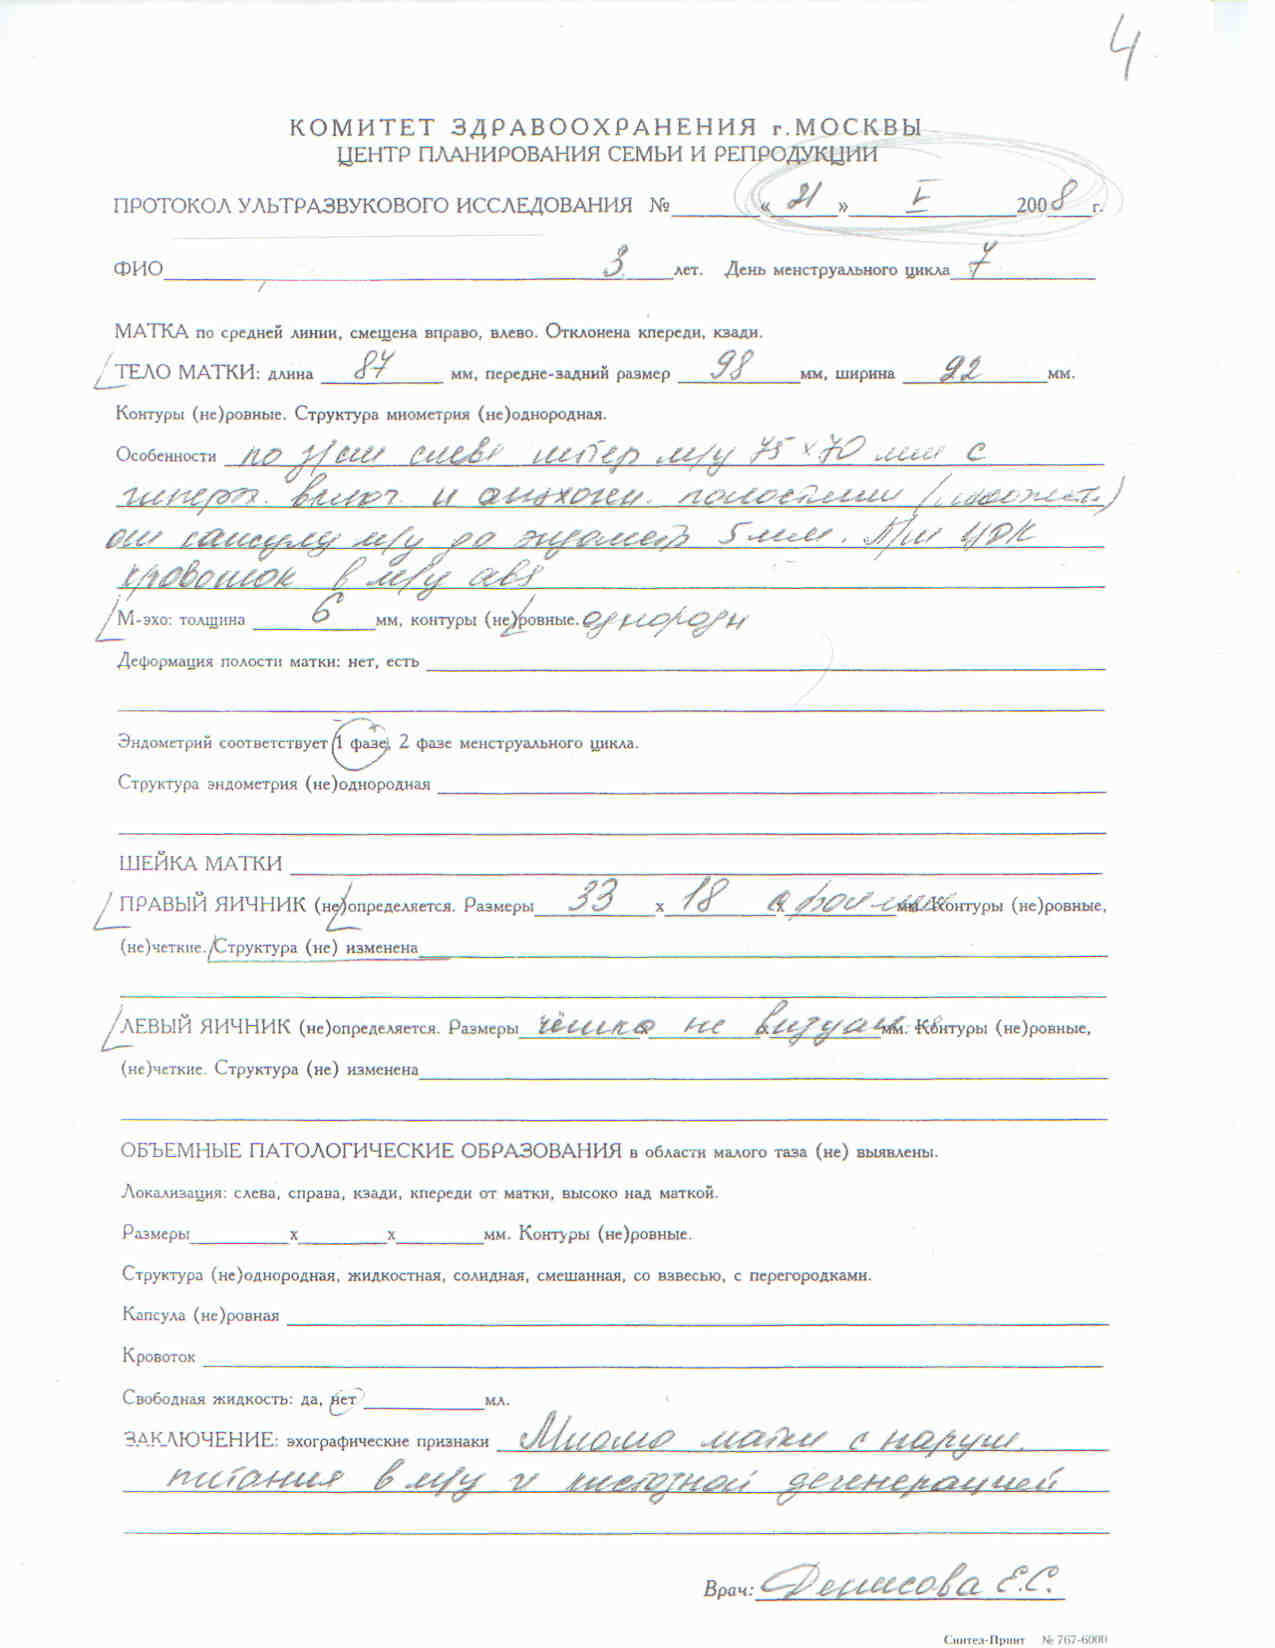 4
КОМИТЕТ ЗДРАВООХРАНЕНИЯ г.МОСКВЫ
ЦЕНТР ПЛАНИРОВАНИЯ СЕМЬИ И РЕПРОДУКЦИИ
ПРОТОКОЛ УЛЬТРАЗВУКОВОГО ИССЛЕДОВАНИЯ № « 21 » I 2008 г.
ФИО 3 лет. День менструального цикла 7
МАТКА по средней линии, смещена вправо, влево. Отклонена кпереди, кзади.
ТЕЛО МАТКИ: длина 87 мм, передне-задний размер 98 мм, ширина 92 мм.
Контуры (не)ровные. Структура миометрия (не)однородная.
Особенности по слева интер м/у 75 х 70 мм с
гиперэх. включ. и анэхоген. полостями
от капсулы м/у до эндометр 5 мм. При ЦДК
кровоток в м/у
М-эхо: толщина 6 мм, контуры (не)ровные. однородн
Деформация полости матки: нет, есть
Эндометрий соответствует 1 фазе, 2 фазе менструального цикла.
Структура эндометрия (не)однородная
ШЕЙКА МАТКИ
ПРАВЫЙ ЯИЧНИК (не)определяется. Размеры 33 х 18 х мм. Контуры (не)ровные,
(не)четкие. Структура (не) изменена
ЛЕВЫЙ ЯИЧНИК (не)определяется. Размеры чётко не визуал мм. Контуры (не)ровные,
(не)четкие. Структура (не) изменена
ОБЪЕМНЫЕ ПАТОЛОГИЧЕСКИЕ ОБРАЗОВАНИЯ в области малого таза (не) выявлены.
Локализация: слева, справа, кзади, кпереди от матки, высоко над маткой.
Размеры х х мм. Контуры (не)ровные.
Структура (не)однородная, жидкостная, солидная, смешанная, со взвесью, с перегородками.
Капсула (не)ровная
Кровоток
Свободная жидкость: да, нет мл.
ЗАКЛЮЧЕНИЕ: эхографические признаки Миома матки с наруш.
питания в м/у и кистозной дегенерацией
Врач: Денисова Е.С.
Синтел-Принт № 767-6000